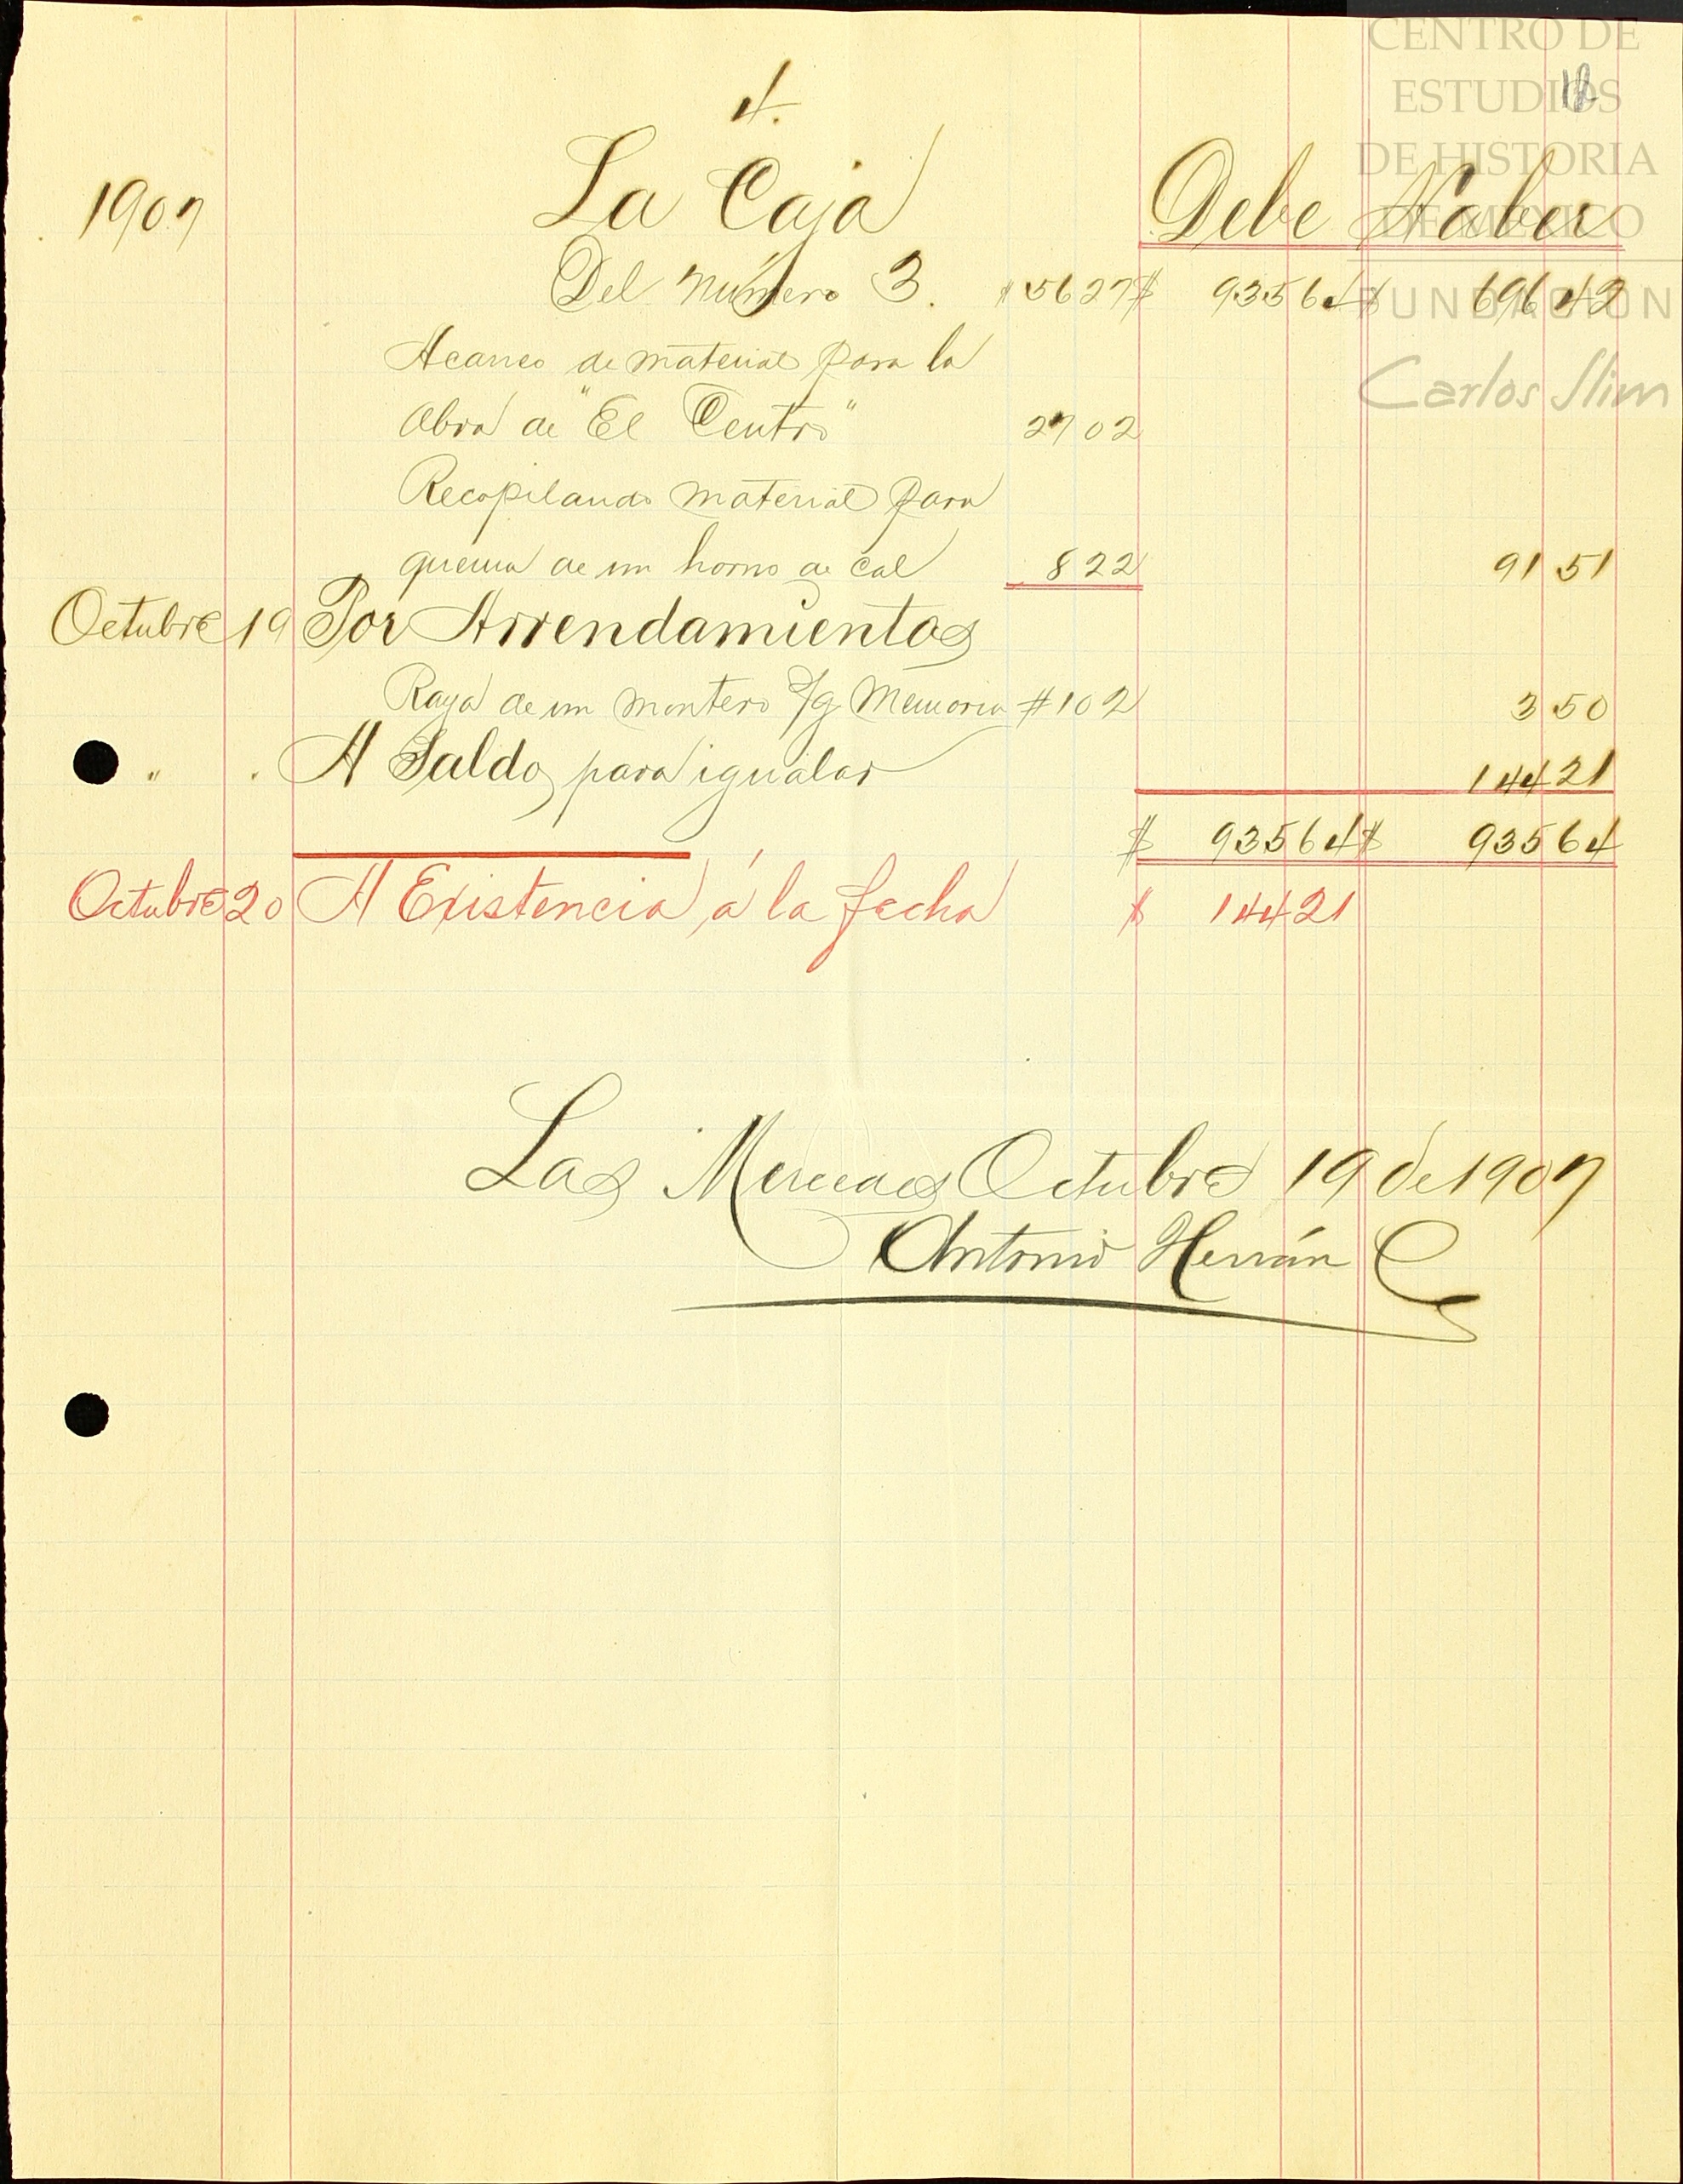 CENTRO DE
ESTUDIOS
DE HISTORIA
DE MÉXICO
FUNDACIÓN
Carlos Slim
12
4.
1907 La Caja Debe Haber
Del Número 3. $ 56 27 $ 935 64 $ 696 42
Acarreo de material para la
obra de "El Centro" 27 02
Recopilando material para
quema de un horno de cal 8 22 91 51
Octubre 19 Por Arrendamientos
Raya de un montero S/g Memoria #102 3 50
" . A Saldo, para igualar 144 21
$ 935 64 $ 935 64
Octubre 20 A Existencia á la fecha $ 144 21
Las Mercedes Octubre 19 de 1907
Antonio Herrán C